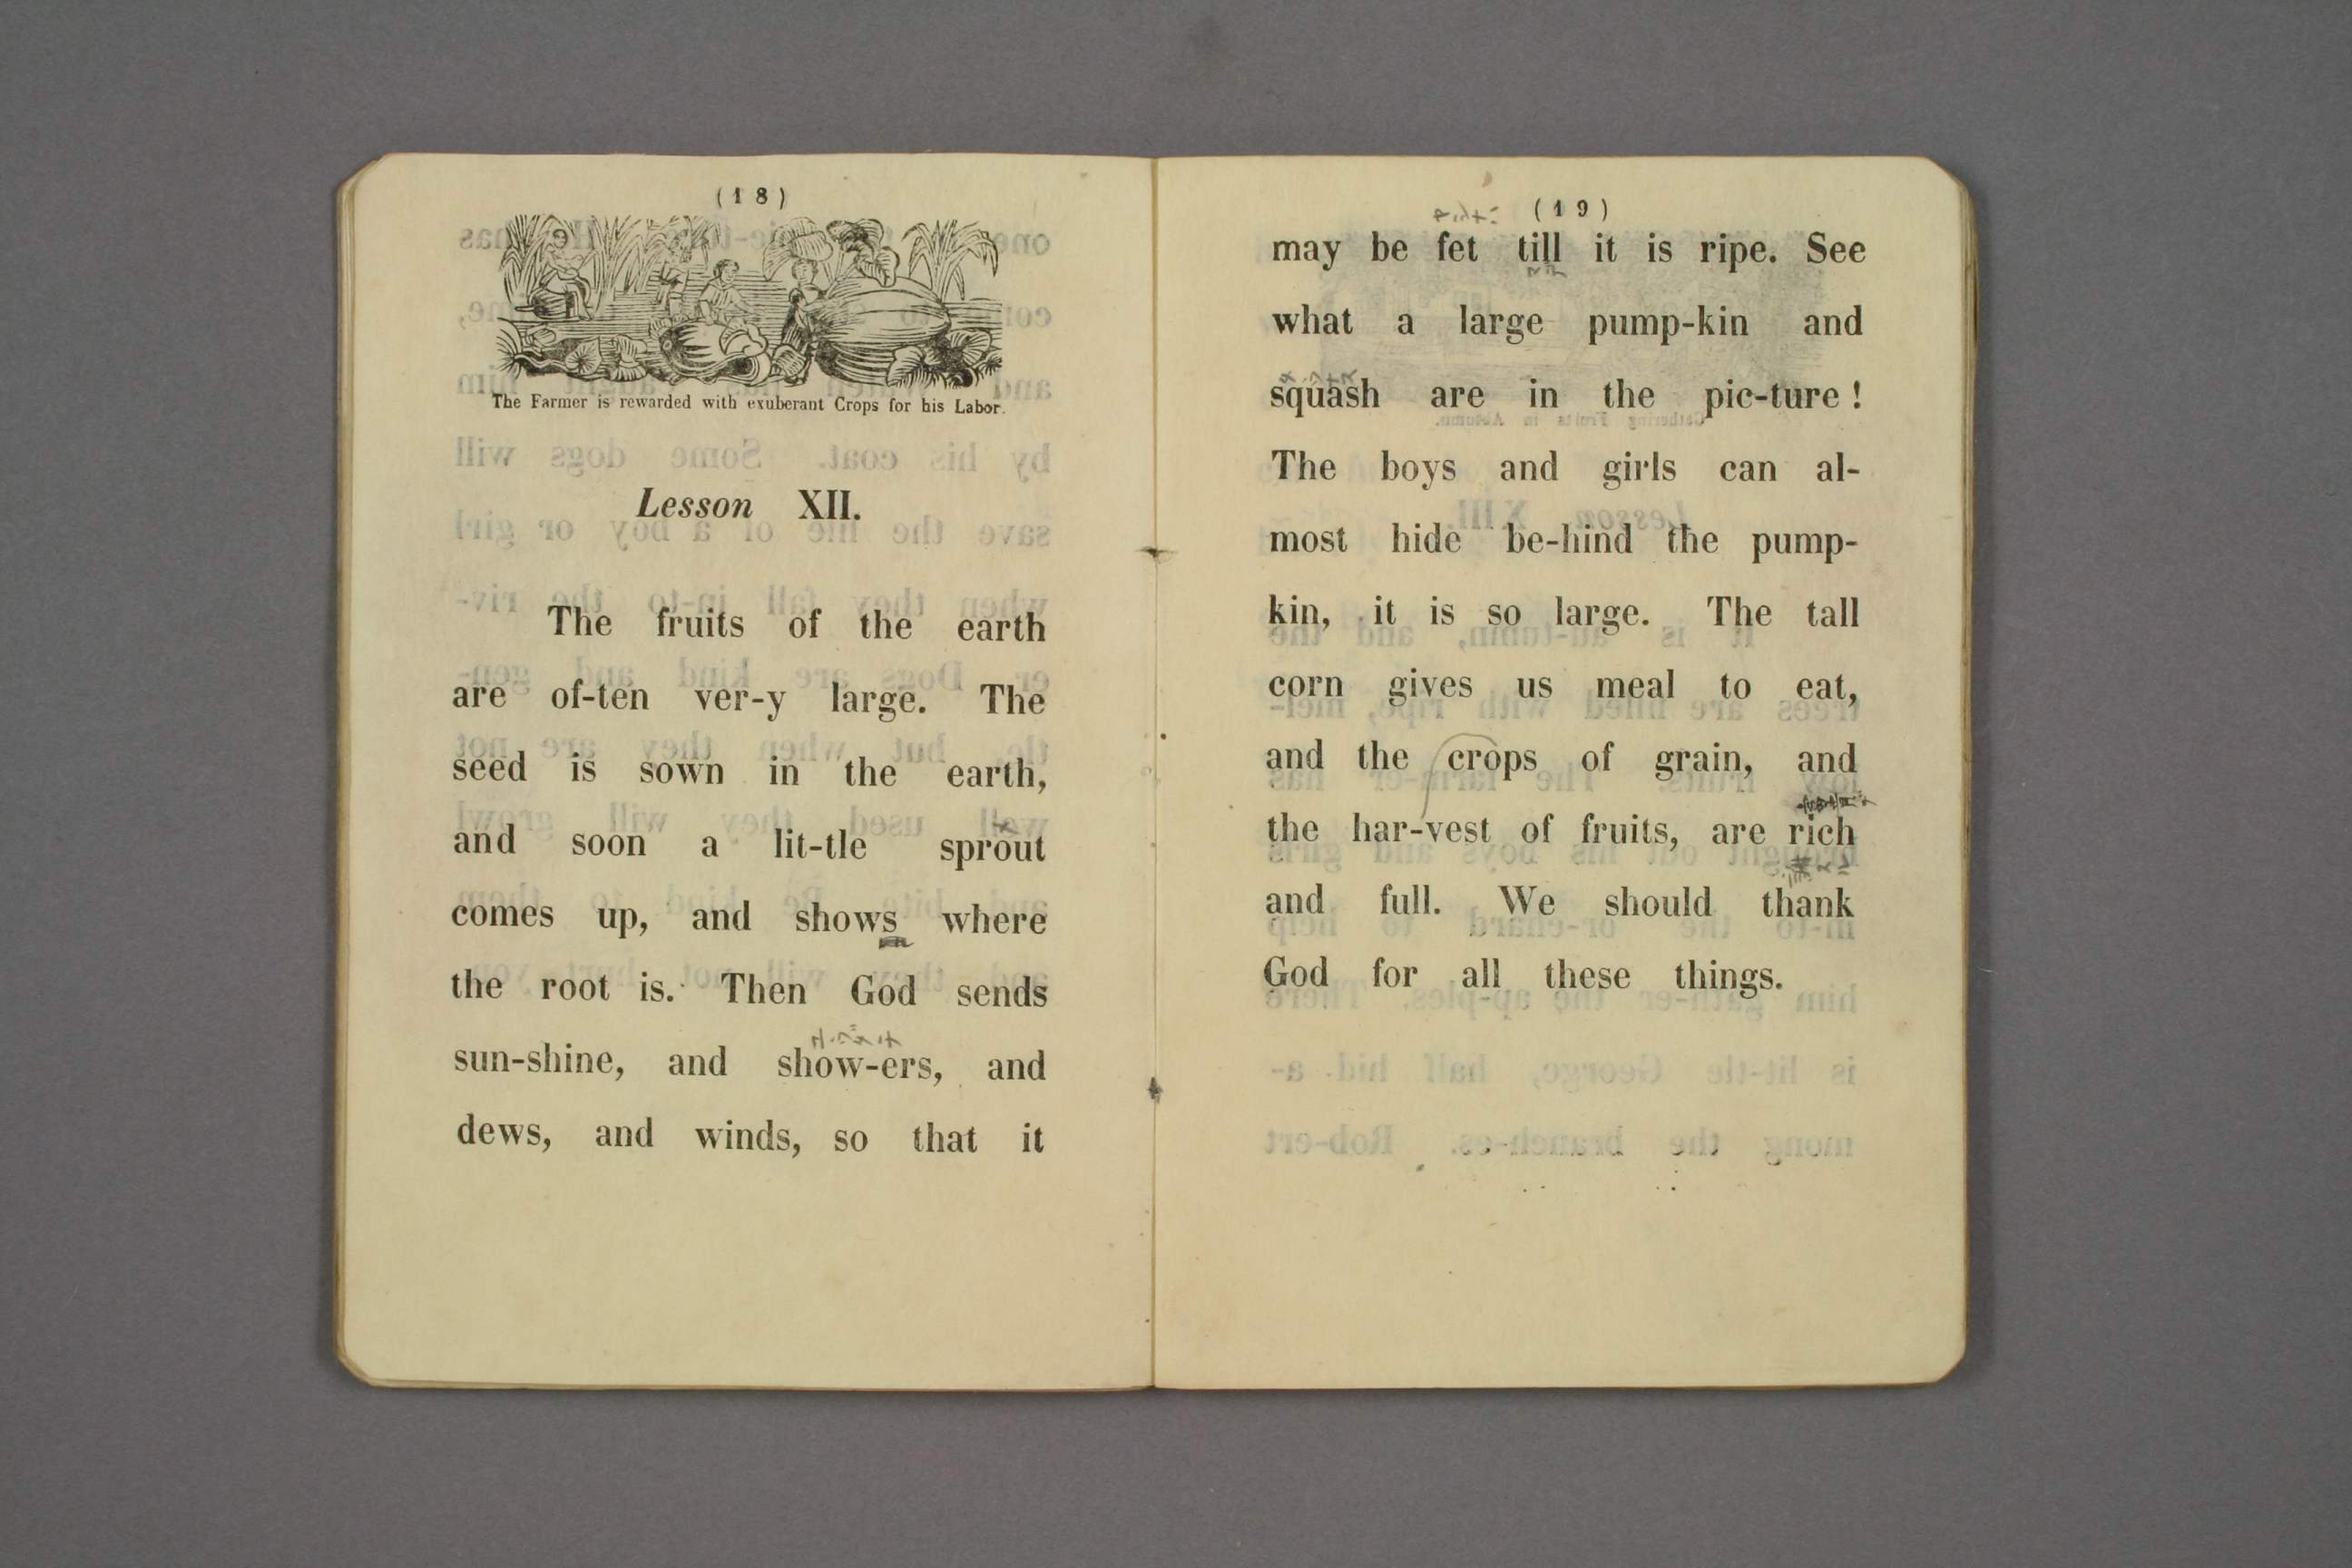 (18)
The Farmer is rewarded with exuberant Crops for his Labor.
Lesson XII.
The fruits of the earth
are of-ten ver-y large. The
seed is sown in the earth,
and soon a lit-tle sprout
comes up, and shows where
the root is. Then God sends
sun-shine, and show-ers, and
dews, and winds, so that it
(19)
may be fet till it is ripe. See
what a large pump-kin and
squash are in the pic-ture!
The boys and girls can al-
most hide be-hind the pump-
kin, it is so large. The tall
corn gives us meal to eat,
and the crops of grain, and
the har-vest of fruits, are rich
and full. We should thank
God for all these things.